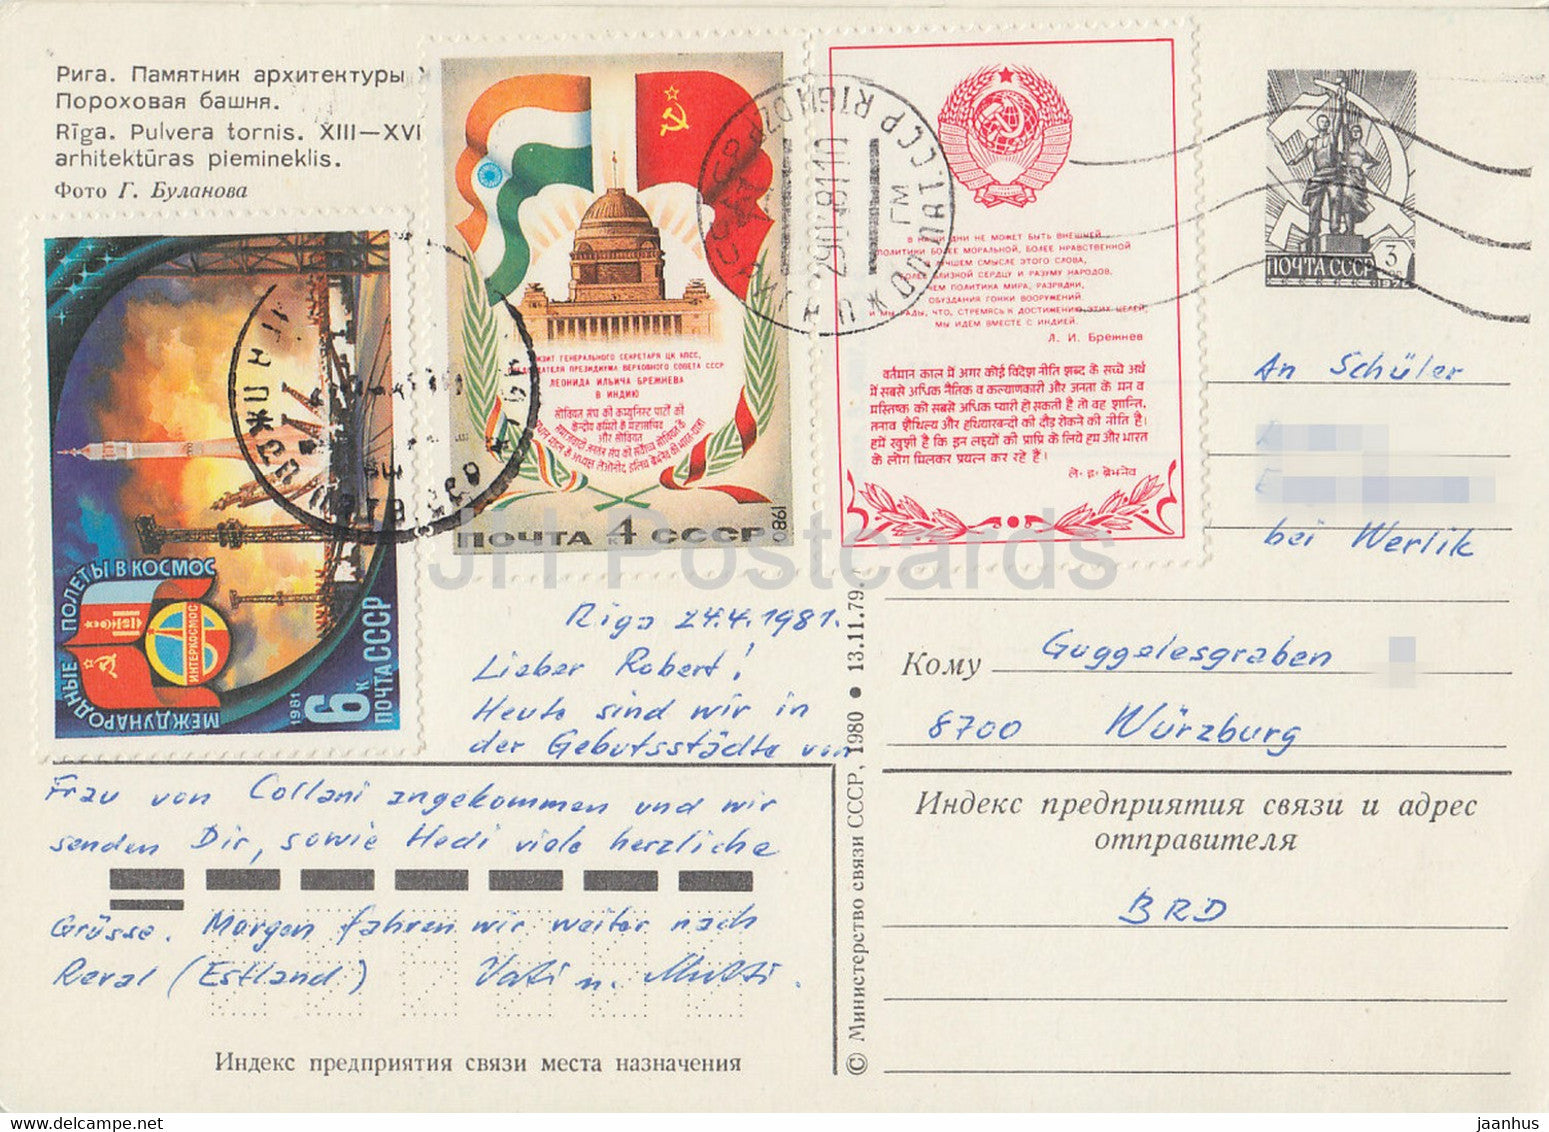 Рига. Памятник архитектуры
Пороховая башня.
Rīga. Pulvera tornis. XIII—XVI
arhitektūras piemineklis.
Фото Г. Буланова
МЕЖДУНАРОДНЫЕ ПОЛЕТЫ В КОСМОС
ИНТЕРКОСМОС
1981
6 к
ПОЧТА СССР
ВИЗИТ ГЕНЕРАЛЬНОГО СЕКРЕТАРЯ ЦК КПСС,
ПРЕДСЕДАТЕЛЯ ПРЕЗИДИУМА ВЕРХОВНОГО СОВЕТА СССР
ЛЕОНИДА ИЛЬИЧА БРЕЖНЕВА
В ИНДИЮ
सोवियत संघ की कम्युनिस्ट पार्टी की
केन्द्रीय कमिटी के महासचिव
और सोवियत
ПОЧТА 4 СССР
1980
В НАШИ ДНИ НЕ МОЖЕТ БЫТЬ ВНЕШНЕЙ
ПОЛИТИКИ БОЛЕЕ МОРАЛЬНОЙ, БОЛЕЕ НРАВСТВЕННОЙ
ЛУЧШЕМ СМЫСЛЕ ЭТОГО СЛОВА,
БОЛЕЕ БЛИЗКОЙ СЕРДЦУ И РАЗУМУ НАРОДОВ,
ЧЕМ ПОЛИТИКА МИРА, РАЗРЯДКИ,
ОБУЗДАНИЯ ГОНКИ ВООРУЖЕНИЙ.
И МЫ РАДЫ, ЧТО, СТРЕМЯСЬ К ДОСТИЖЕНИЮ ЭТИХ ЦЕЛЕЙ,
МЫ ИДЕМ ВМЕСТЕ С ИНДИЕЙ.
Л. И. Брежнев
वर्तमान काल में अगर कोई विदेश नीति शब्द के सच्चे अर्थ
में सबसे अधिक नैतिक व कल्याणकारी और जनता के मन व
मस्तिष्क को सबसे अधिक प्यारी हो सकती है तो वह शान्ति,
तनाव शैथिल्य और हथियारबन्दी की दौड़ रोकने की नीति है।
हमें खुशी है कि इन लक्ष्यों की प्राप्ति के लिये हम और भारत
के लोग मिलकर प्रयत्न कर रहे हैं।
ले॰ इ॰ ब्रेझनेव
3
ПОЧТА СССР
An Schüler
bei Werlik
Кому Guggelesgraben
8700 Würzburg
Индекс предприятия связи и адрес
отправителя
BRD
Riga 24.4.1981.
Lieber Robert!
Heute sind wir in
der Gebutsstädte von
Frau von Collani angekommen und wir
senden Dir, sowie Hedi viele herzliche
Grüsse. Morgen fahren wir weiter nach
Reval (Estland) Vati u. Mutti.
Индекс предприятия связи места назначения
© Министерство связи СССР, 1980 ● 13.11.79.
JH Postcards
jaanhus